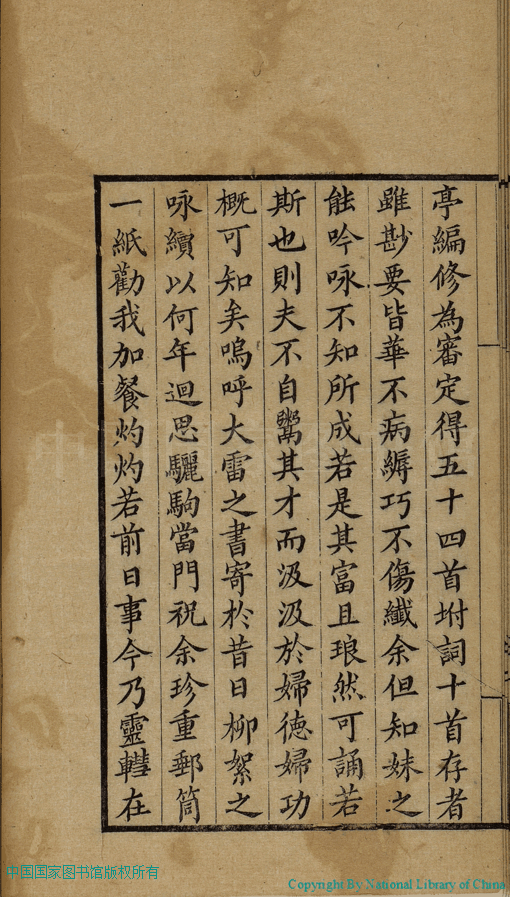 亭編修為審定得五十四首坿詞十首存者
雖尠要皆華不病縟巧不傷纖余但知妹之
能吟咏不知所成若是其富且琅然可誦若
斯也則夫不自鬻其才而汲汲於婦德婦功
概可知矣嗚呼大雷之書寄於昔日柳絮之
咏續以何年迴思驪駒當門祝余珍重郵筒
一紙勸我加餐灼灼若前日事今乃靈轊在
中国国家图书馆版权所有
Copyright By National Library of China